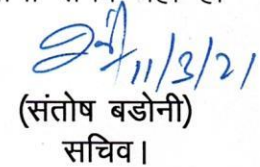 11/3/21
(संतोष बडोनी)
सचिव।